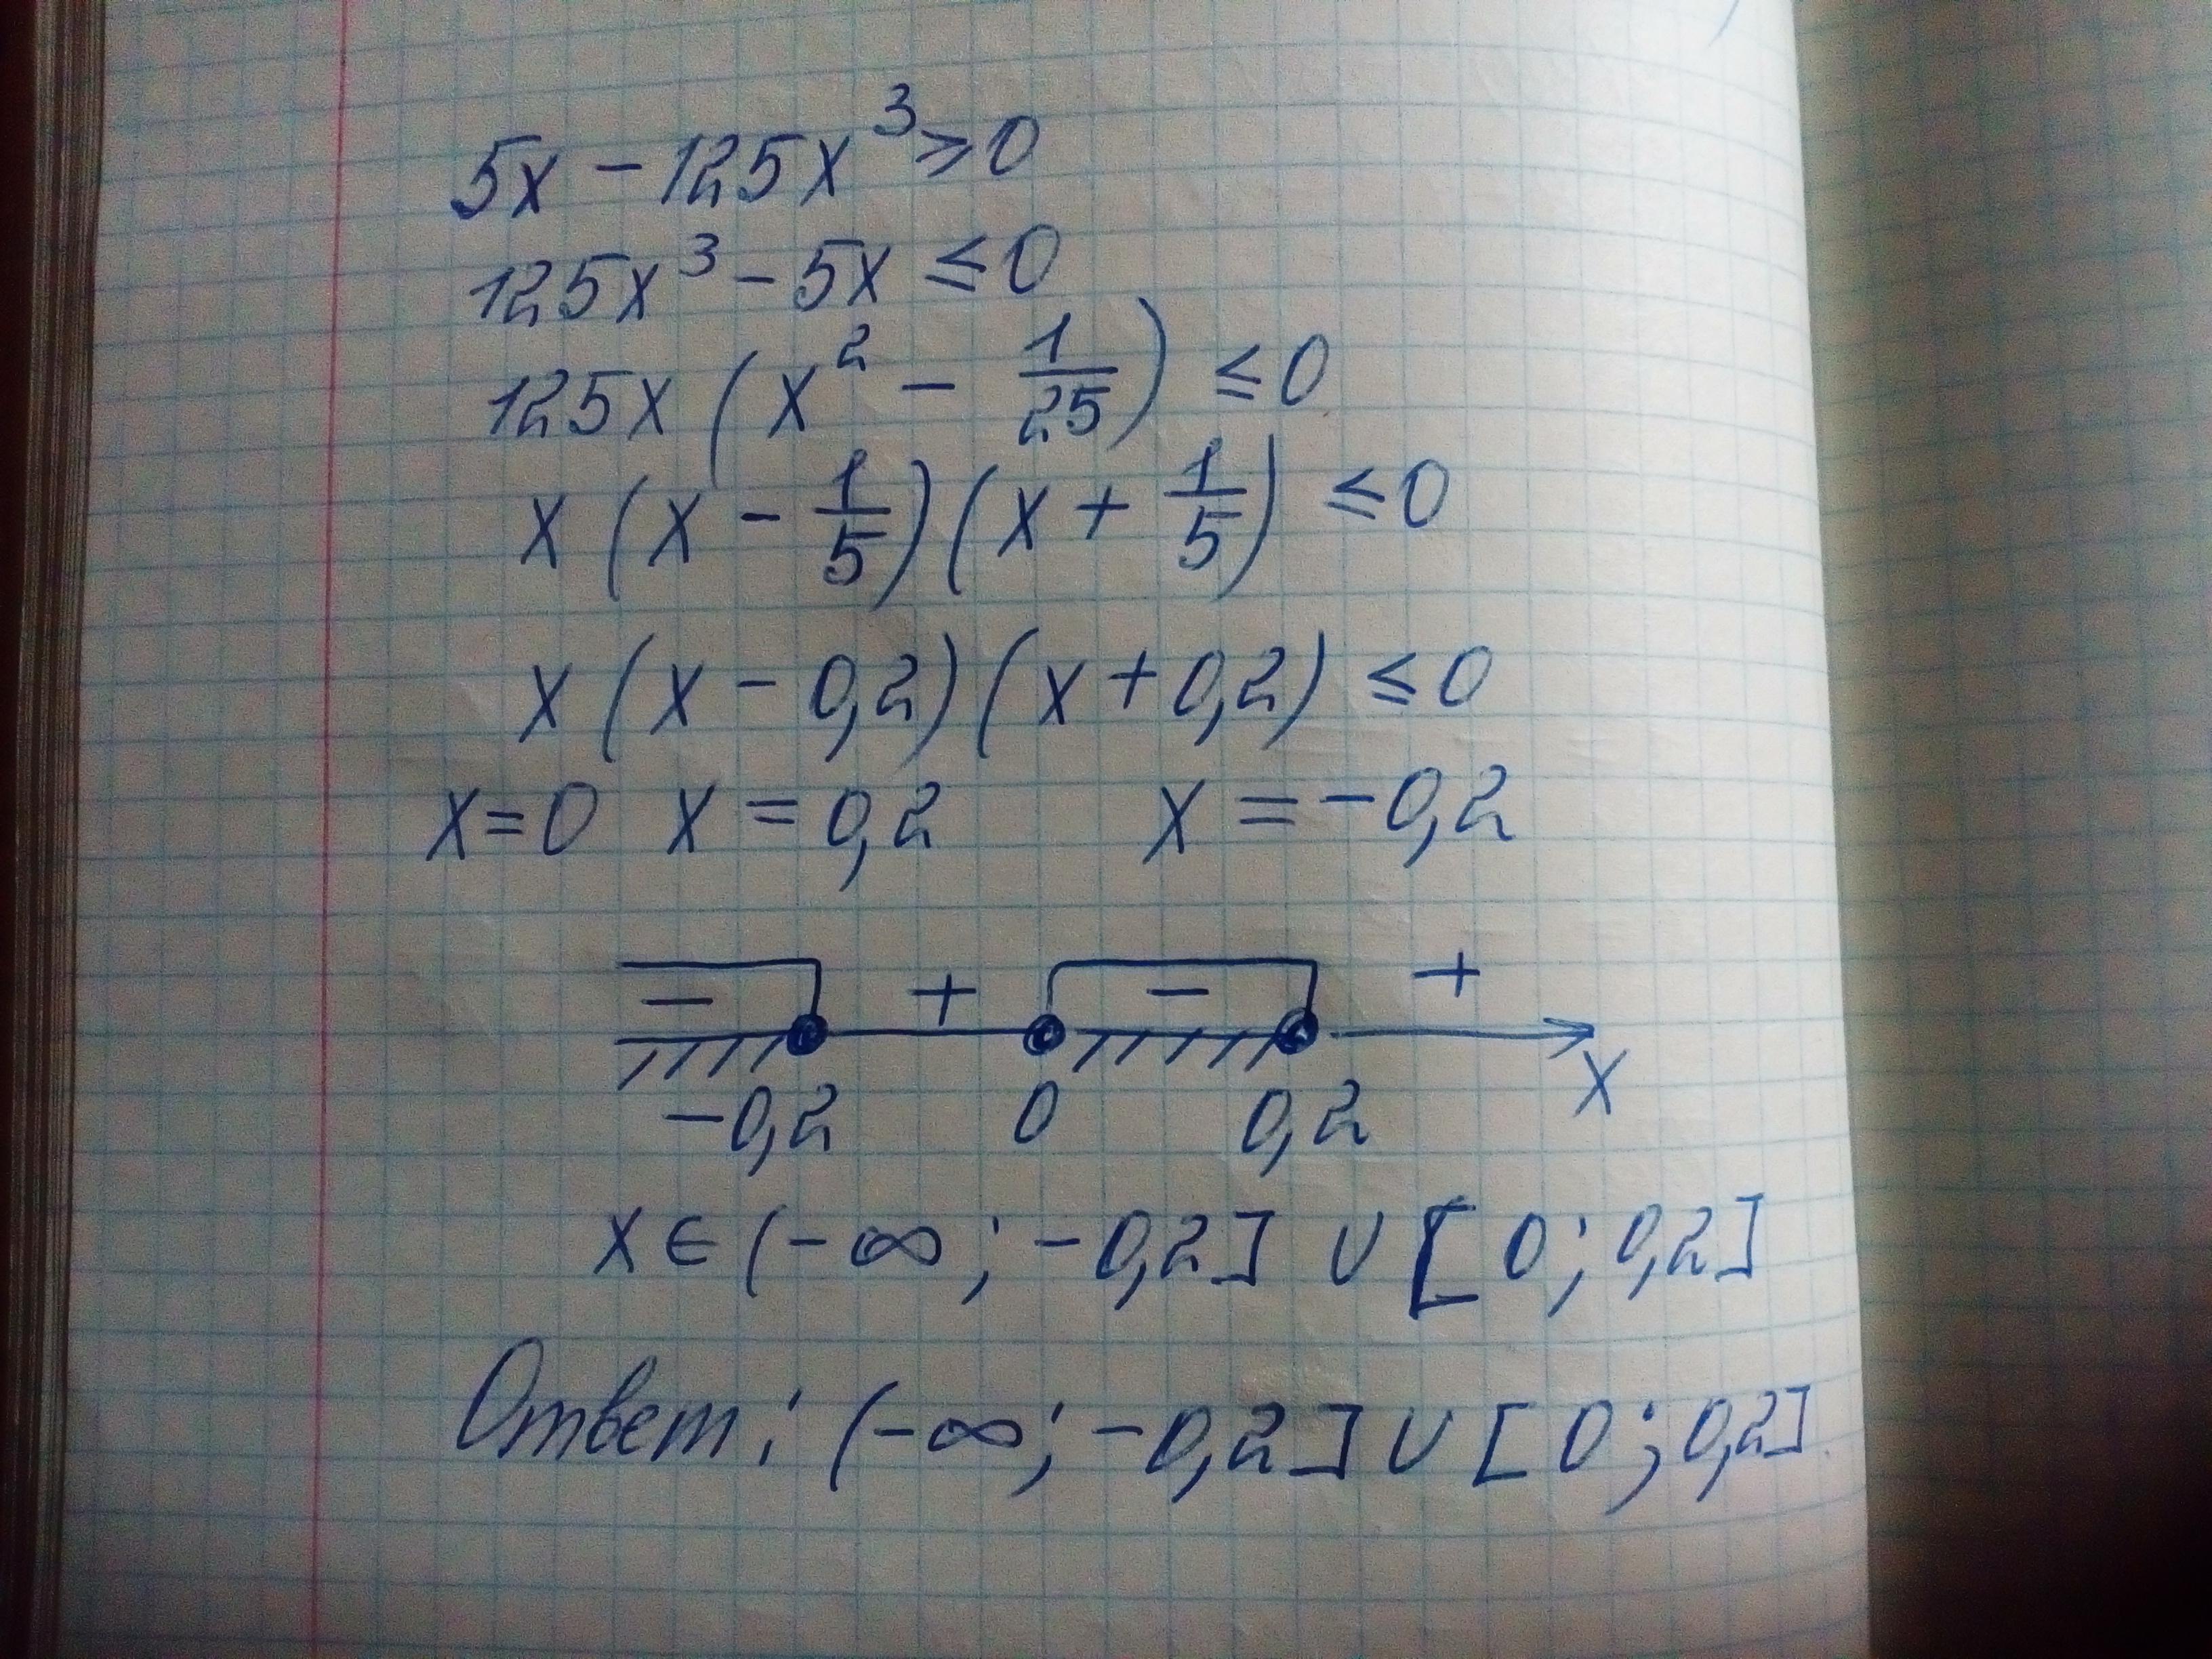 5x - 125x³ ⩾ 0
125x³ - 5x ⩽ 0
125x (x² - 1/25) ⩽ 0
x (x - 1/5) (x + 1/5) ⩽ 0
x (x - 0,2) (x + 0,2) ⩽ 0
x = 0 x = 0,2 x = -0,2
- + - +
-0,2 0 0,2 x
x ∈ (-∞; -0,2] ∪ [0; 0,2]
Ответ: (-∞; -0,2] ∪ [0; 0,2]